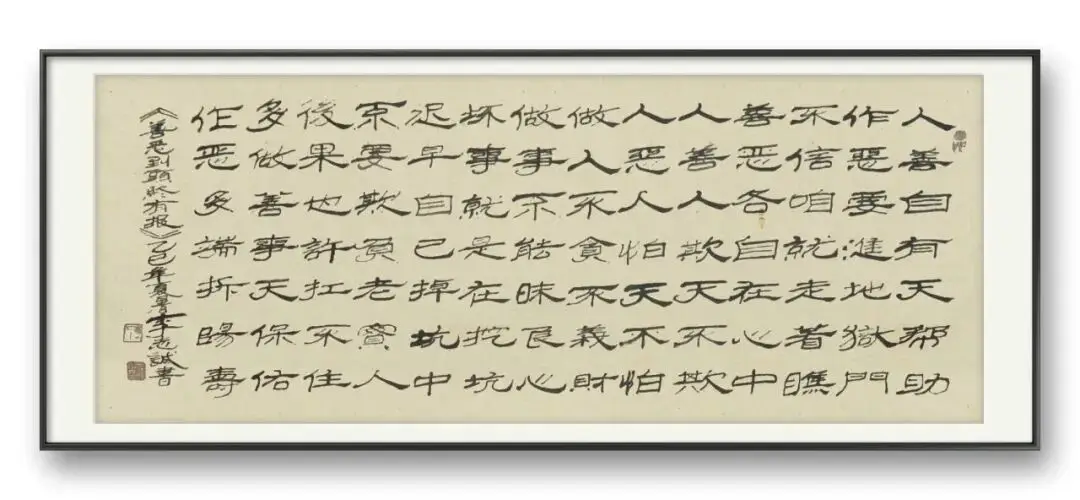 人善自有天帮助
作惡要進地獄門
不信咱就走著瞧
善惡各自在心中
人善人欺天不欺
人惡人怕天不怕
做人不貪不義財
做事不能昧良心
坏事就是在挖坑
迟早自己掉坑中
不要欺負老實人
後果也許扛不住
多做善事天保佑
作惡多端折陽壽
《善惡到頭終有报》乙巳年夏李志誠書